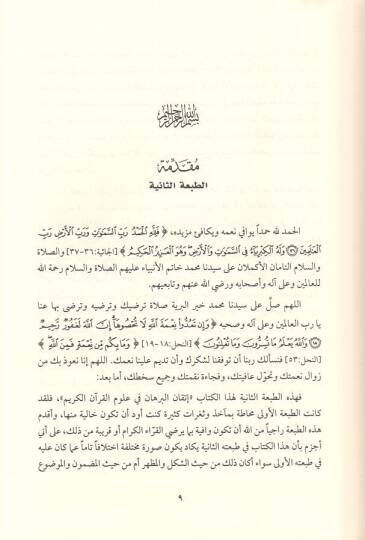 بسم الله الرحمن الرحيم
مُقَدِّمة
الطبعة الثانية
الحمد لله حمداً يوافي نعمه ويكافئ مزيده، ﴿ فَلِلَّهِ الْحَمْدُ رَبِّ السَّمَوَتِ وَرَبِّ الْأَرْضِ رَبِّ
الْعَلَمِينَ ﴿٣٦﴾ وَلَهُ الْكِبْرِيَاءُ فِي السَّمَوَتِ وَالْأَرْضِ وَهُوَ الْعَزِيزُ الْحَكِيمُ ﴾ [الجاثية:٣٦-٣٧] والصلاة
والسلام التامان الأكملان على سيدنا محمد خاتم الأنبياء عليهم الصلاة والسلام رحمة الله
للعالمين وعلى آله وأصحابه ورضي الله عنهم وتابعيهم.
اللهم صلِّ على سيدنا محمد خير البرية صلاة ترضيك وترضيه وترضى بها عنا
يا رب العالمين وعلى آله وصحبه ﴿ وَإِن تَعُدُّوا نِعْمَةَ اللَّهِ لَا تُحْصُوهَا إِنَّ اللَّهَ لَغَفُورٌ رَّحِيمٌ
﴿١٨﴾ وَاللَّهُ يَعْلَمُ مَا تُسِرُّونَ وَمَا تُعْلِنُونَ ﴾ [النحل:١٨-١٩] ﴿ وَمَا بِكُم مِّن نِّعْمَةٍ فَمِنَ اللَّهِ ﴾
[النحل:٥٣] فنسألك ربنا أن توفقنا لشكرك وأن تديم علينا نعمك. اللهم إنا نعوذ بك من
زوال نعمتك وتحوّل عافيتك، وفجاءة نقمتك وجميع سخطك، أما بعد:
فهذه الطبعة الثانية لهذا الكتاب «إتقان البرهان في علوم القرآن الكريم»، فلقد
كانت الطبعة الأولى محاطة بمآخذ وثغرات كثيرة كنت أود أن تكون خالية منها، وأقدم
هذه الطبعة راجياً من الله أن تكون وافية بما يرضي القرّاء الكرام أو قريبة من ذلك، على أني
أجزم بأن هذا الكتاب في طبعته الثانية يكاد يكون صورة مختلفة اختلافاً تاماً عما كان عليه
في طبعته الأولى سواء أكان ذلك من حيث الشكل والمظهر أم من حيث المضمون والموضوع
٩